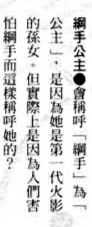 綱手公主●會稱呼「綱手」為「
公主」，是因為她是第一代火影
的孫女。但實際上是因為人們害
怕綱手而這樣稱呼她的？